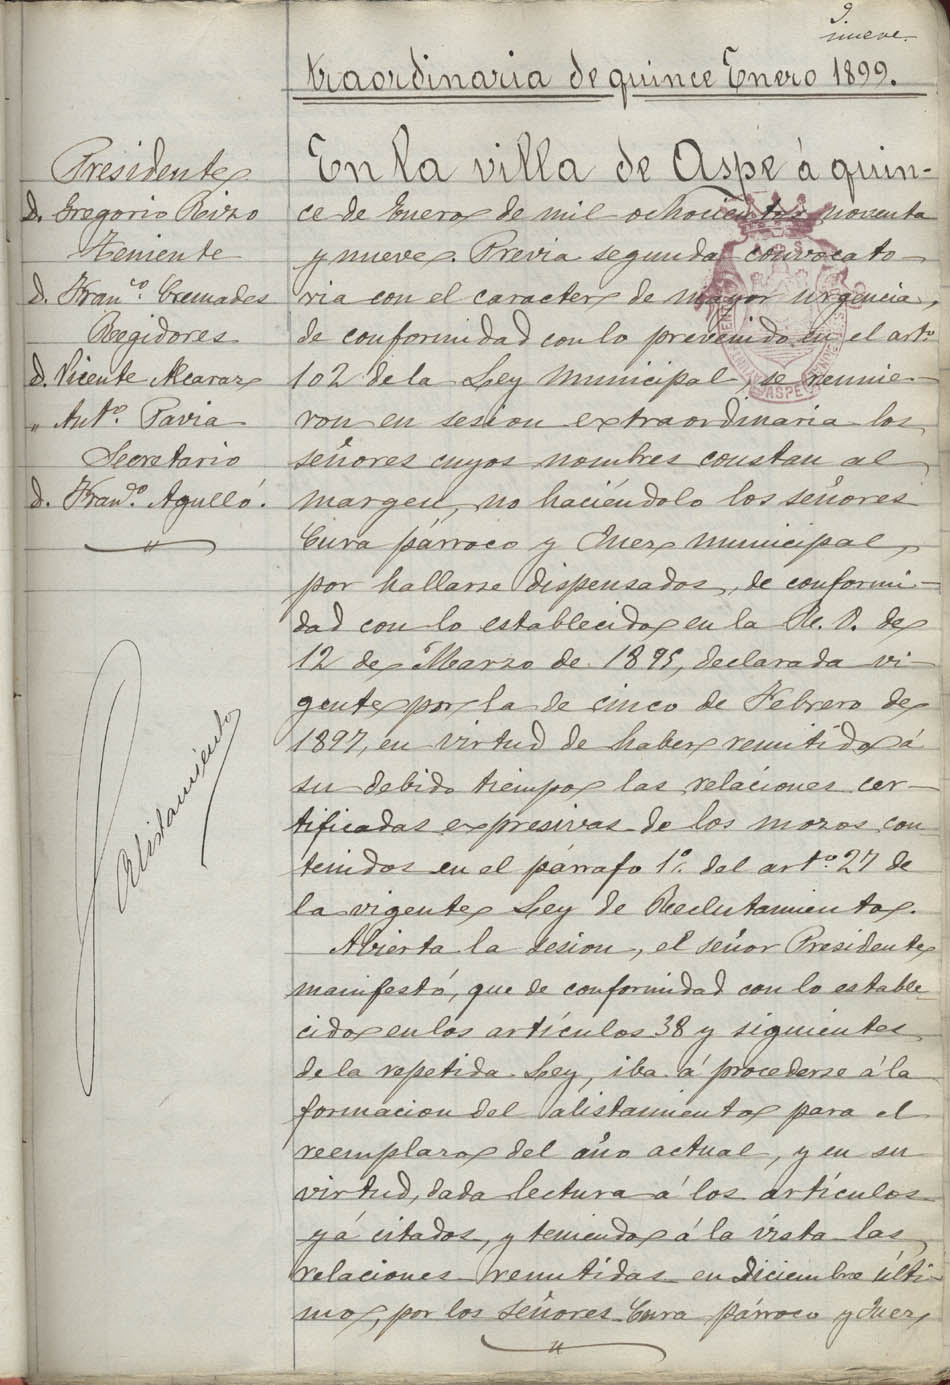 9.
nueve.
traordinaria de quince Enero 1899.
Presidente
D. Gregorio Rizo
Teniente
D. Fran.co Cremades
Regidores
D. Vicente Alcaraz
" Ant.o Pavia
Secretario
D. Fran.co Agulló.
Alistamiento
En la villa de Aspe á quin-
ce de Enero de mil ochocientos noventa
y nueve. Previa segunda convocato-
ria con el caracter de mayor urgencia,
de conformidad con lo prevenido en el art.o
102 de la Ley Municipal, se reunie-
ron en sesion extraordinaria los
señores cuyos nombres constan al
margen, no haciéndolo los señores
Cura párroco y Juez municipal,
por hallarse dispensados, de conformi-
dad con lo establecido en la R. O. de
12 de Marzo de 1895, declarada vi-
gente por la de cinco de Febrero de
1897, en virtud de haber remitido á
su debido tiempo las relaciones cer-
tificadas expresivas de los mozos con-
tenidos en el párrafo 1.o del art.o 27 de
la vigente Ley de Reclutamiento.
Abierta la sesion, el señor Presidente
manifestó, que de conformidad con lo estable-
cido en los artículos 38 y siguientes
de la repetida Ley, iba á procederse á la
formacion del alistamiento para el
reemplazo del año actual, y en su
virtud, dada lectura á los artículos
yá citados, y teniendo á la vista las
relaciones remitidas en Diciembre últi-
mo, por los señores Cura párroco y Juez
ASPE